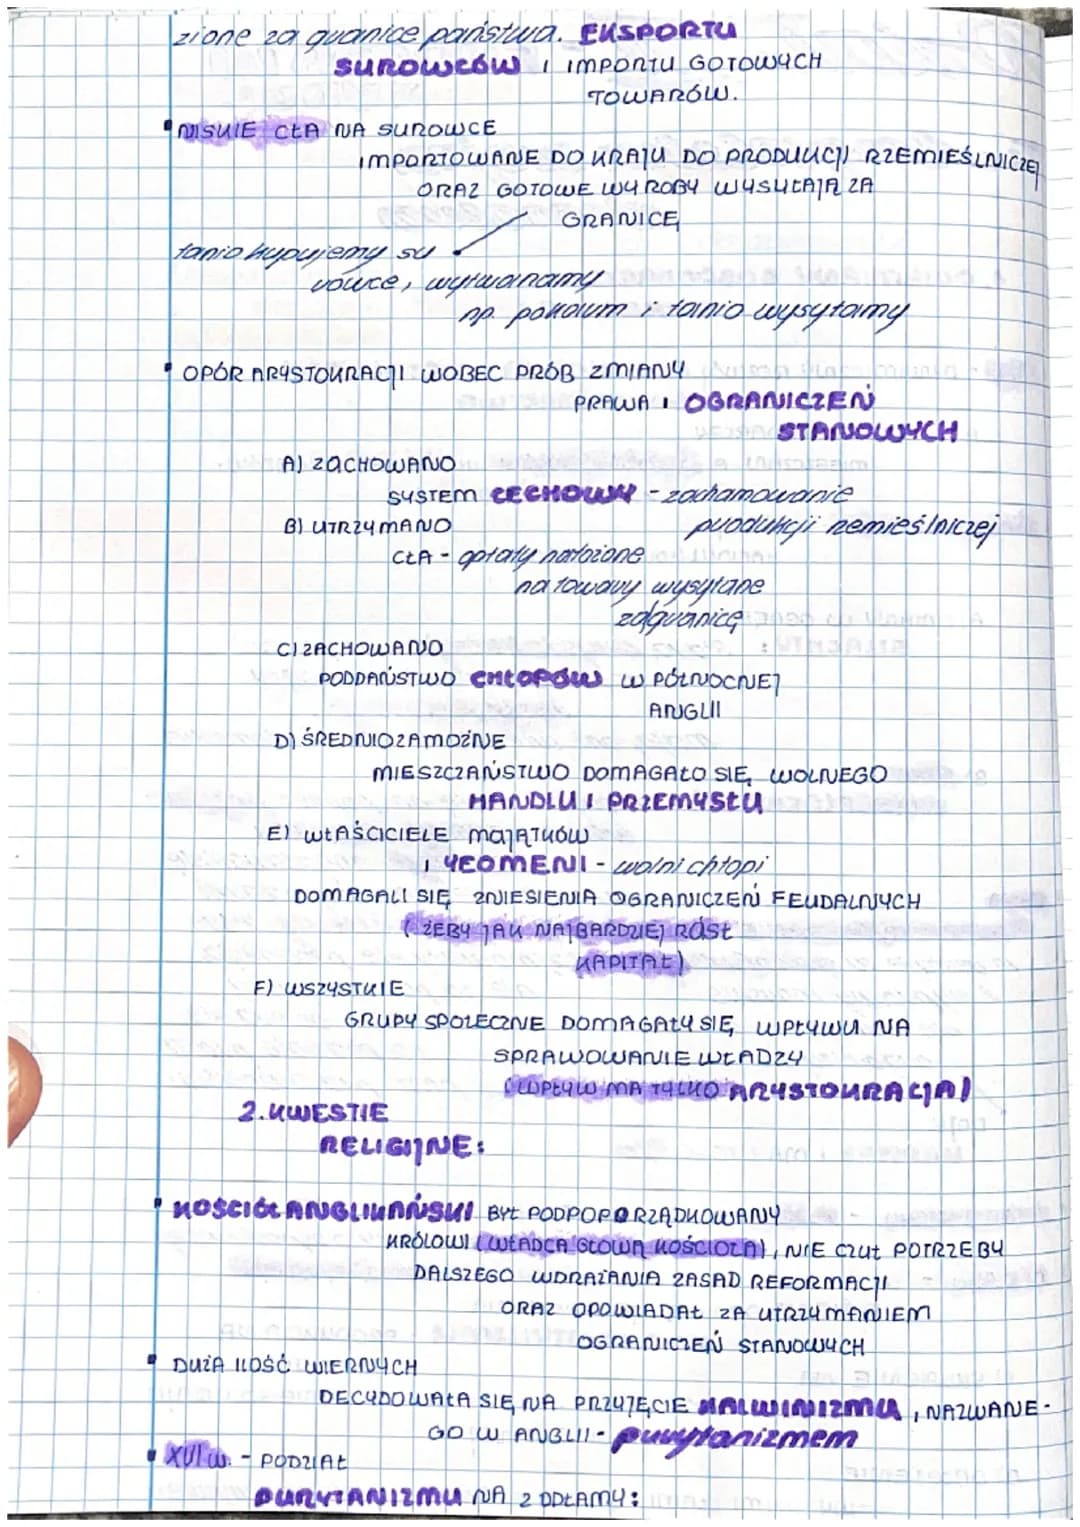 zione za granice państwa. EKSPORTU
SUROWCÓW I IMPORTU GOTOWYCH
TOWARÓW.
NISKIE CŁA NA SUROWCE
IMPORTOWANE DO KRAJU DO PRODUKCJI RZEMIEŚLNICZEJ
ORAZ GOTOWE WYROBY WYSYŁAJĄ ZA
GRANICĘ
tanio kupujemy su
rowce, wytwarzamy
np. pokarm i tanio wysyłamy
OPÓR ARYSTOKRACJI WOBEC PRÓB ZMIANY
PRAWA I OGRANICZEŃ
STANOWYCH
A) ZACHOWANO
SYSTEM CECHOWY - zachamowanie
produkcji rzemieślniczej
B) UTRZYMANO
CŁA - opłaty nałożone
na towary wysyłane
za granicę
C) ZACHOWANO
PODDAŃSTWO CHŁOPÓW W PÓŁNOCNEJ
ANGLII
D) ŚREDNIOZAMOŻNE
MIESZCZAŃSTWO DOMAGAŁO SIĘ WOLNEGO
HANDLU I PRZEMYSŁU
E) WŁAŚCICIELE MAJĄTKÓW
I YEOMENI - wolni chłopi
DOMAGALI SIĘ ZNIESIENIA OGRANICZEŃ FEUDALNYCH
(ŻEBY JAK NAJBARDZIEJ RÓSŁ
KAPITAŁ)
F) WSZYSTKIE
GRUPY SPOŁECZNE DOMAGAŁY SIĘ WPŁYWU NA
SPRAWOWANIE WŁADZY
(WPŁYW MA TYLKO ARYSTOKRACJA)
2. KWESTIE
RELIGIJNE:
KOŚCIÓŁ ANGLIKAŃSKI BYŁ PODPORZĄDKOWANY
KRÓLOWI (WŁADCA GŁOWĄ KOŚCIOŁA), NIE CZUŁ POTRZEBY
DALSZEGO WDRAŻANIA ZASAD REFORMACJI
ORAZ OPOWIADAŁ ZA UTRZYMANIEM
OGRANICZEŃ STANOWYCH
DUŻA ILOŚĆ WIERNYCH
DECYDOWAŁA SIĘ NA PRZYJĘCIE KALWINIZMU, NAZWANE-
GO W ANGLII - purytanizmem
XVI w. - PODZIAŁ
PURYTANIZMU NA 2 ODŁAMY: